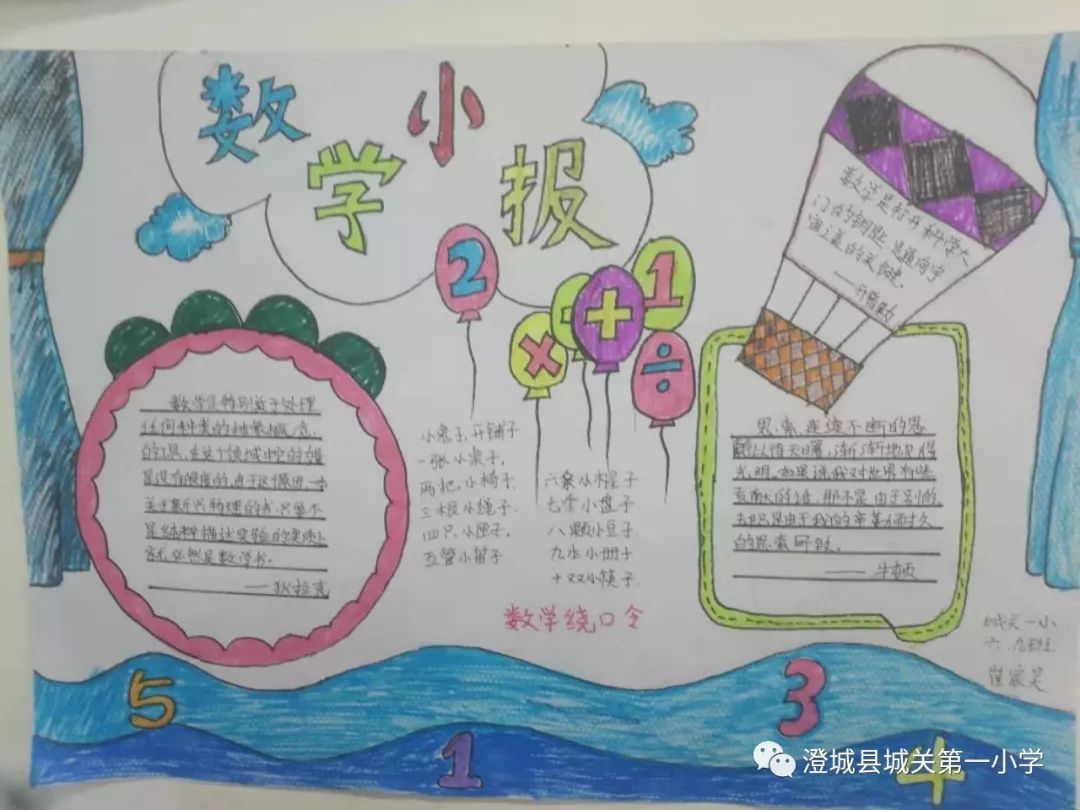 数学小报
2
1
×
+
÷
数学是打开科学大
门的钥匙,是通向宇
宙之差的关键.
——开普勒
数学是特别适于处理
任何种类的抽象概念
的工具,在这个领域中它的力量
是没有限度的.由于这个原因,一本
关于新兴物理的书,只要不
是纯粹描述实验的实质上
就必然是数学书.
——狄拉克
小兔子,开铺子
一张小桌子,
两把,小椅子,
三根小绳子.
四只小匣子,
五管小笛子
六条小棍子
七个小盘子
八颗小豆子
九本小册子
十双小筷子
数学绕口令
思索,连续不断的思
以待天曙,渐渐地见得
光明.如果说我对世界有些
贡献的话,那不是由于别的,
却只是由于我的辛勤而持久
的思索所致.
——牛顿
城关一小
六.九班
崔宸昊
5
1
3
4
澄城县城关第一小学